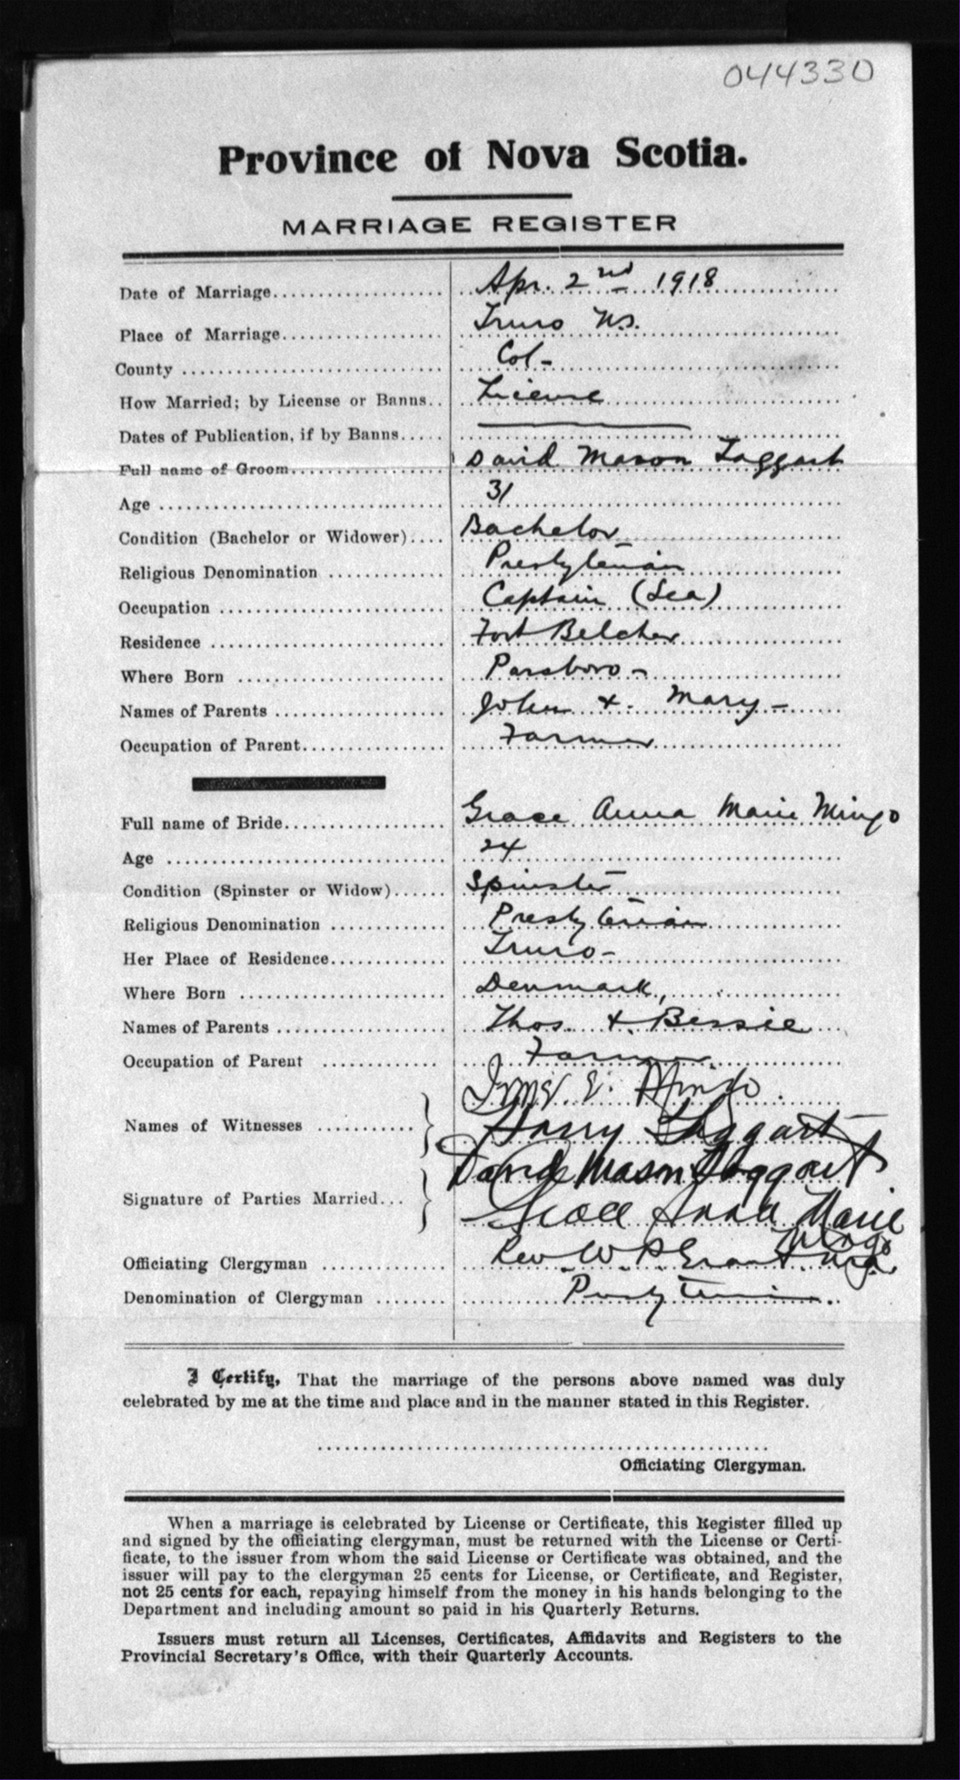 044330
Province of Nova Scotia.
MARRIAGE REGISTER
Date of Marriage.................... Apr. 2nd 1918
Place of Marriage................... Truro N.S.
County ............................. Col-
How Married; by License or Banns.. License
Dates of Publication, if by Banns.....
Full name of Groom.................. David Mason Taggart
Age ................................ 31
Condition (Bachelor or Widower).... Bachelor
Religious Denomination ............. Presbyterian
Occupation ......................... Captain (Sea)
Residence .......................... Fort Belcher
Where Born ......................... Parsboro-
Names of Parents ................... John & Mary-
Occupation of Parent................ Farmer
Full name of Bride.................. Grace Anna Marie Mingo
Age ................................ 24
Condition (Spinster or Widow)...... Spinster
Religious Denomination ............. Presbyterian
Her Place of Residence.............. Truro-
Where Born ......................... Denmark,
Names of Parents ................... Thos. & Bessie
Occupation of Parent ............... Farmer
E. Mingo
Names of Witnesses ........... Harry Taggart
David Mason Taggart
Signature of Parties Married... Grace Anna Marie
Mingo
Officiating Clergyman .............. Rev. W. P. Grant.
Denomination of Clergyman ........ Presbyterian.
I Certify, That the marriage of the persons above named was duly
celebrated by me at the time and place and in the manner stated in this Register.
Officiating Clergyman.
When a marriage is celebrated by License or Certificate, this Register filled up
and signed by the officiating clergyman, must be returned with the License or Certi-
ficate, to the issuer from whom the said License or Certificate was obtained, and the
issuer will pay to the clergyman 25 cents for License, or Certificate, and Register,
not 25 cents for each, repaying himself from the money in his hands belonging to the
Department and including amount so paid in his Quarterly Returns.
Issuers must return all Licenses, Certificates, Affidavits and Registers to the
Provincial Secretary's Office, with their Quarterly Accounts.